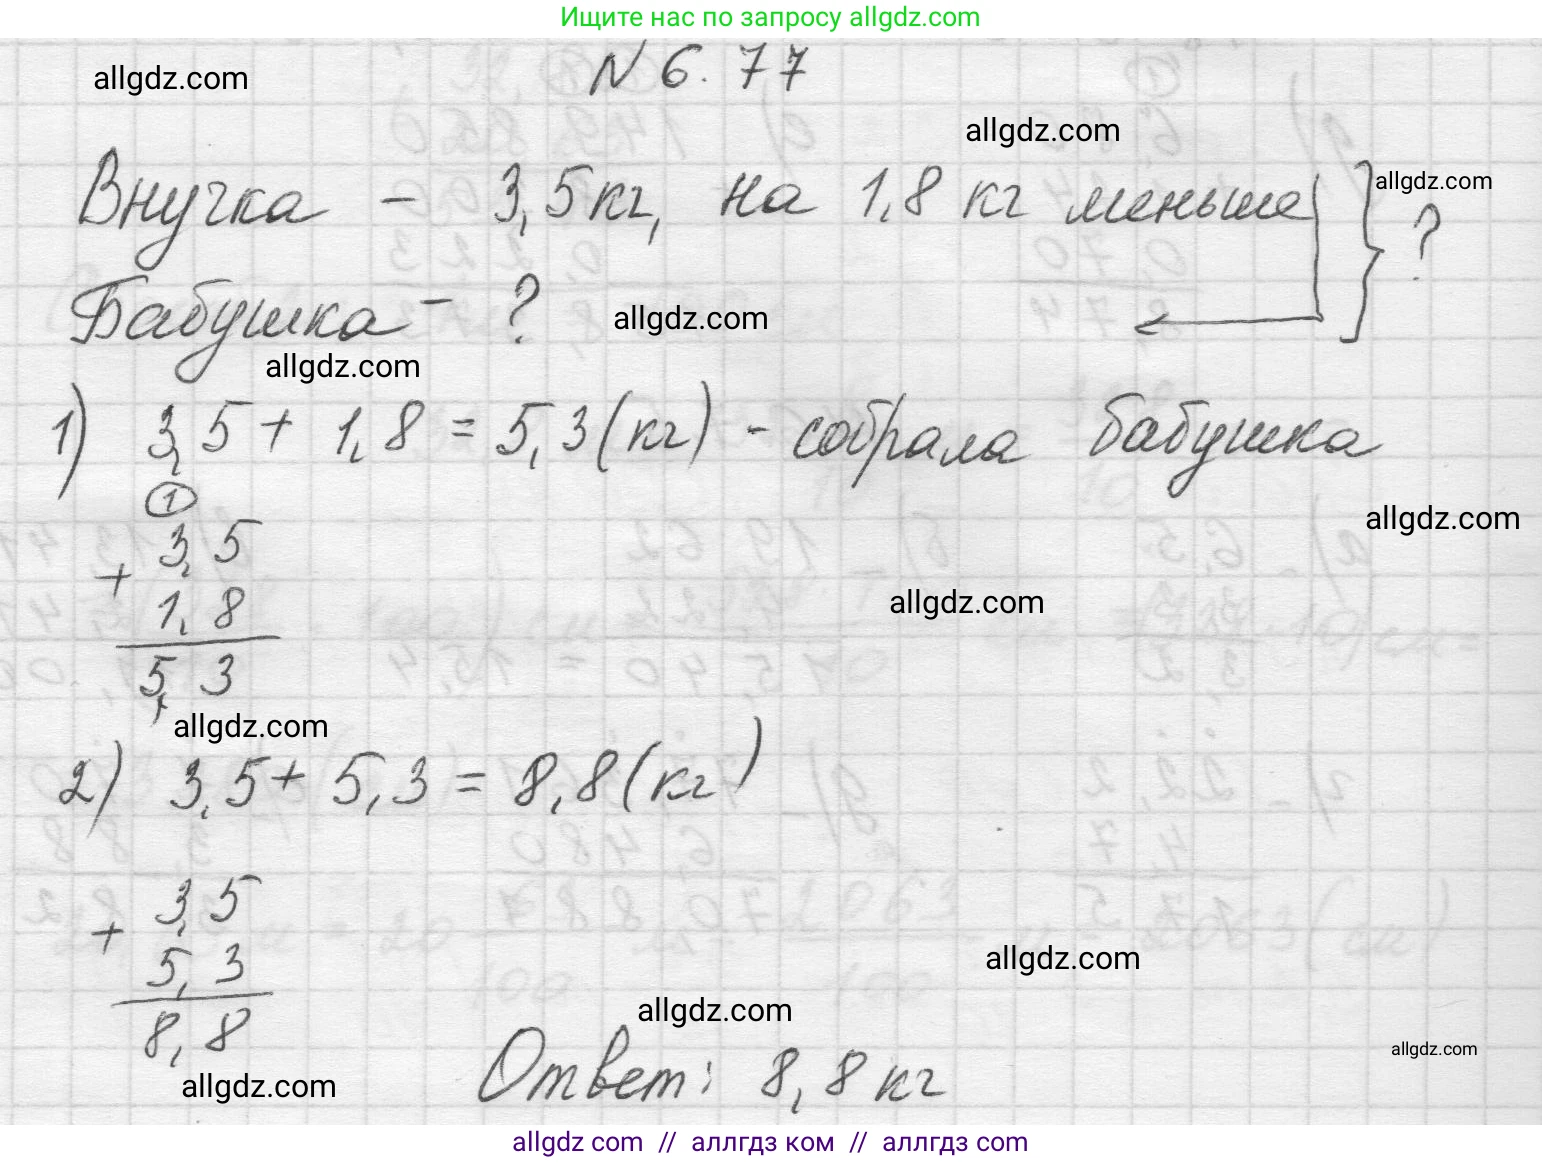 Ищите нас по запросу allgdz.com
N 6.77
allgdz.com
allgdz.com
Внучка - 3,5 кг, на 1,8 кг меньше } ?
allgdz.com
Бабушка - ?
allgdz.com
allgdz.com
1) 3,5 + 1,8 = 5,3 (кг) - собрала бабушка
1
allgdz.com
3,5
+
1,8
allgdz.com
5,3
allgdz.com
2) 3,5 + 5,3 = 8,8 (кг)
3,5
+
5,3
allgdz.com
8,8
allgdz.com
allgdz.com
Ответ: 8,8 кг
allgdz.com
allgdz.com // аллгдз ком // аллгдз com